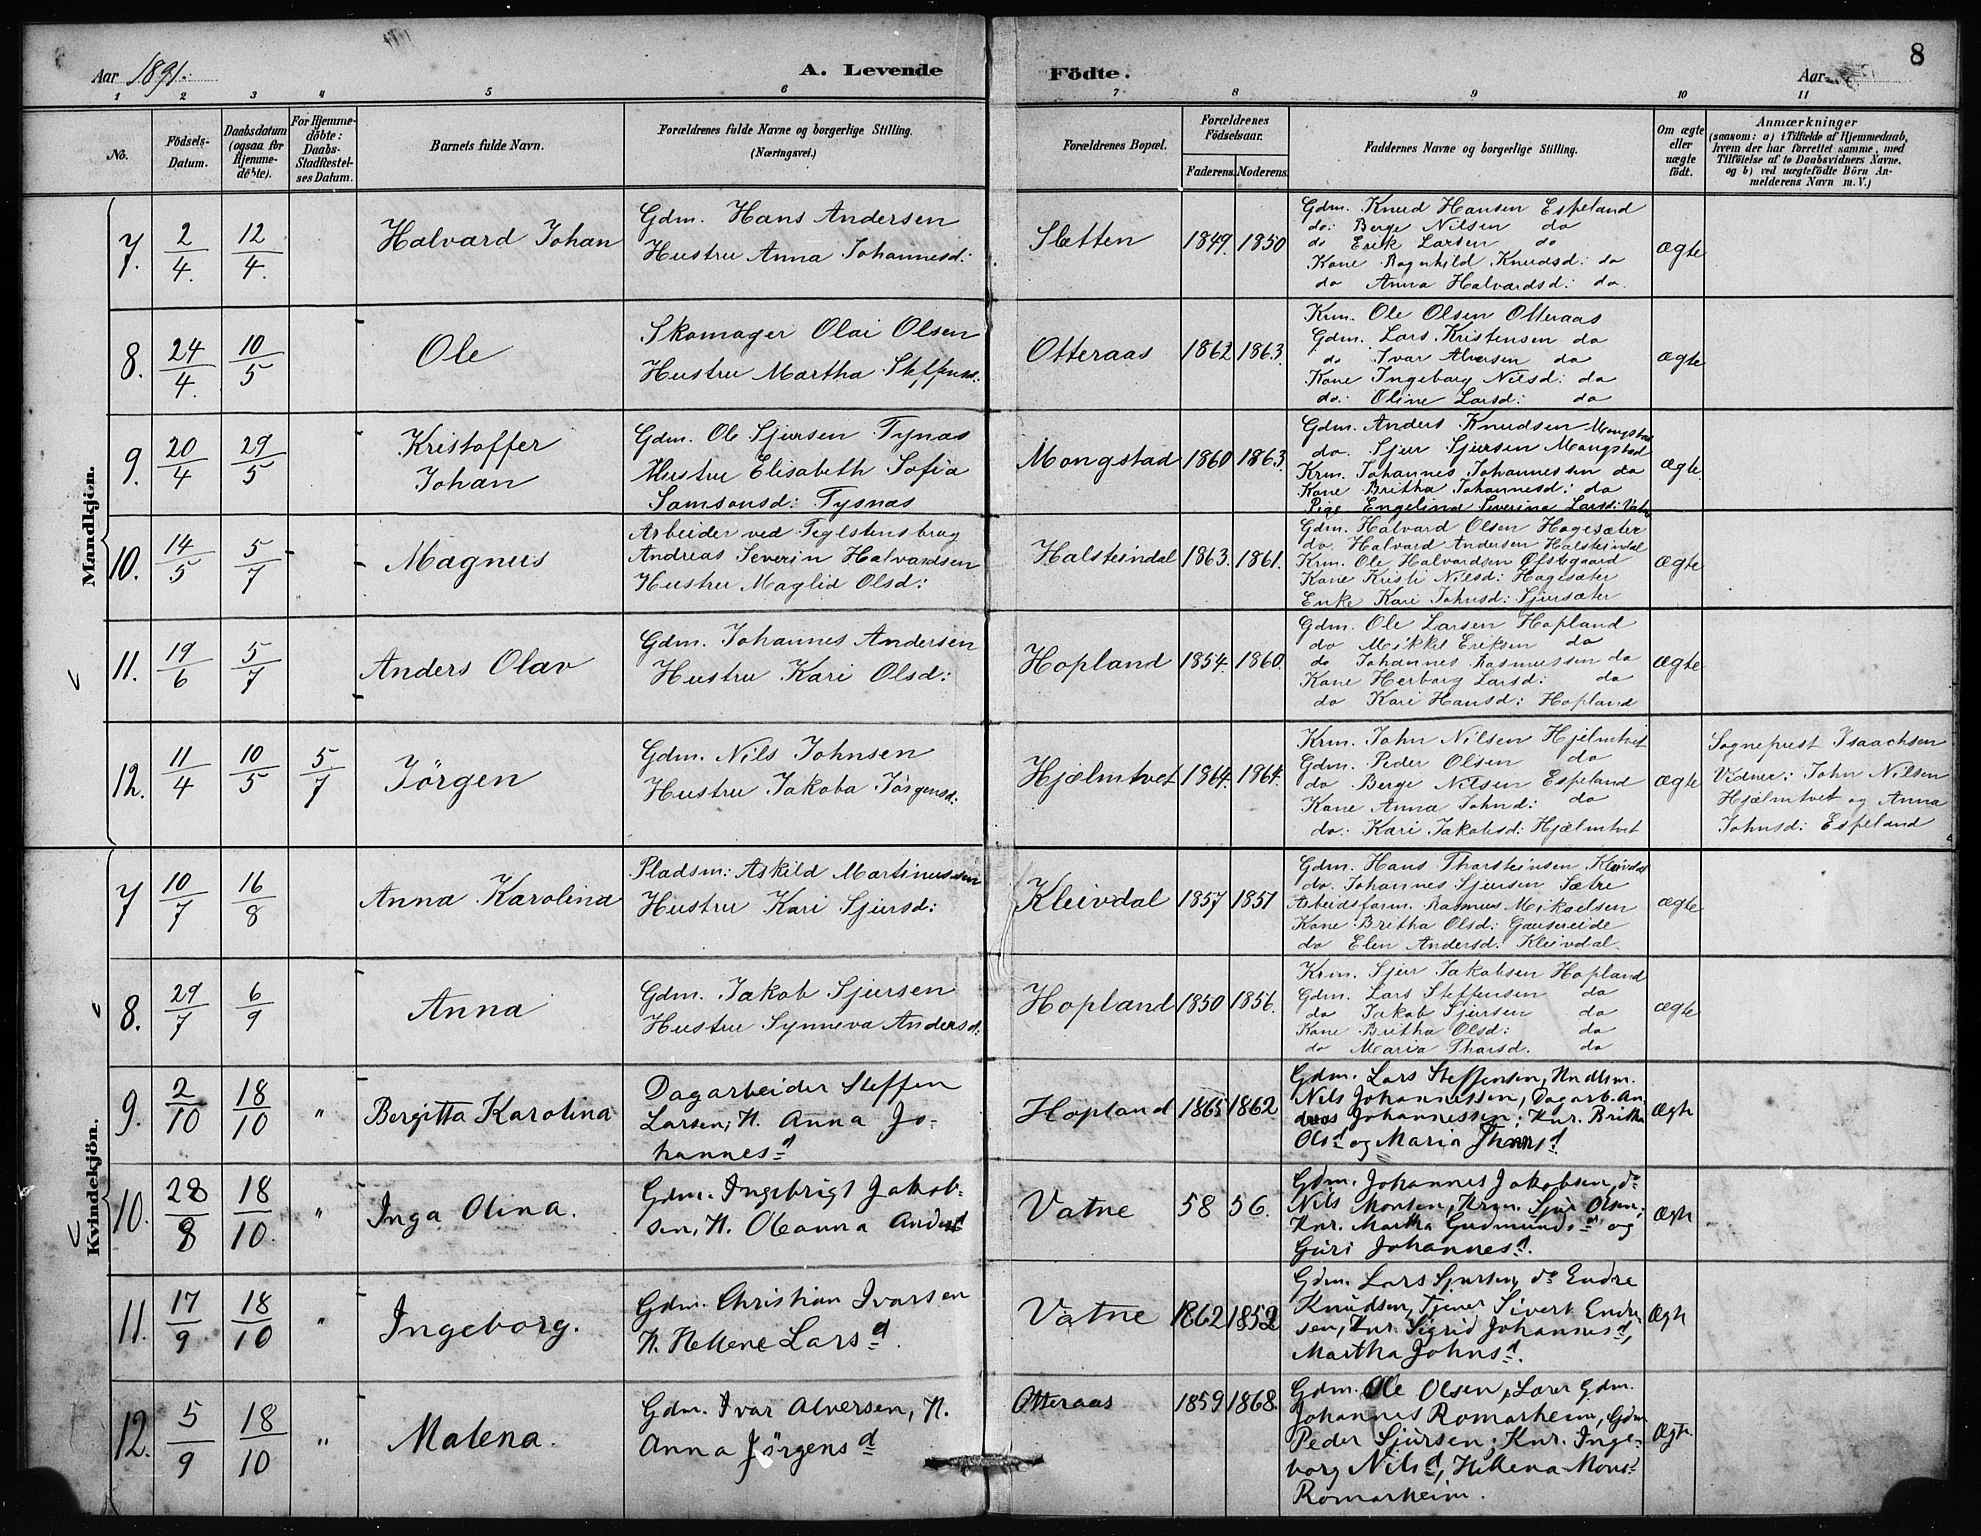 8
Aar 1891.
A. Levende
Födte.
Aar
1 2 3 4 5 6 7 8 9 10 11
No.
Födsels-Datum.
Daabsdatum (ogsaa for Hjemme-döbte).
For Hjemme-döbte: Daabs-Stadfæstel-ses Datum.
Barnets fulde Navn.
Forældrenes fulde Navne og borgerlige Stilling.
(Næringsvei.)
Forældrenes Bopæl.
Forældrenes Födselsaar.
Faderens. Moderens.
Faddernes Navne og borgerlige Stilling.
Om ægte eller uægte födt.
Anmærkninger
(saasom: a) i Tilfælde af Hjemmedaab,
hvem der har forrettet samme, med
Tilföielse af to Daabsvidners Navne.
og b) ved uægtefödte Börn An-
melderens Navn m. V.)
Mandkjön.
7. 2/4. 12/4. Halvard Johan
Gdm. Hans Andersen
Hustru Anna Johannesd:
Sletten 1849. 1850
Gdm. Knud Hansen Espeland
do: Berge Nilsen do
do Erik Larsen do
Kone Ragnhild Knudsd: do
do Anna Halvardsd: do.
ægte
8. 24/4. 10/5 Ole
Skomager Olai Olsen
Hustru Martha Steffensd.
Otteraas 1862 1863.
Krm. Ole Olsen Otteraas
Gdm. Lars Kristensen do
do Ivar Alversen do
Kone Ingeborg Nilsd: do
do: Oline Larsd: do
ægte
9. 20/4 29/5 Kristoffer
Johan
Gdm. Ole Sjursen Tynæs
Hustru Elisabeth Sofia
Samsonsd: Tysnæs
Mongstad 1860 1863.
Gdm. Anders Knudsen Mongstad
do. Sjur Sjursen Mongstad
Krm. Johannes Johannessen do
Kone Britha Johannesd: do
Pige Engelina Severina Larsd:
ægte.
10. 14/5 5/7 Magnus
Arbeider ved Teglstensbrug
Andreas Severin Halvardsen
Hustru Maglid Olsd:
Halsteindal 1863. 1861.
Gdm. Halvard Olsen Hagesæter
do. Halvard Andersen Halsteindal
Krm. Ole Halvardsen Øfstegaard
Kone Kristi Nilsd: Hagesæter
Enke Kari Johnsd: Sjursæter
ægte
11. 19/6 5/7 Anders Olav
Gdm. Johannes Andersen
Hustru Kari Olsd:
Hopland 1854. 1860.
Gdm. Ole Larsen Hopland
do Mikkel Eriksen do
do Johannes Rasmussen do
Kone Herborg Larsd: do
do Kari Hansd: Hopland
ægte
12. 11/4 10/5 5/7 Jörgen
Gdm. Nils Johnsen
Hustru Jakoba Jörgensd:
Hjælmtvet 1864. 1864.
Krm. John Nilsen Hjelmtvet
Gdm. Peder Olsen do
do Berge Nilsen Espeland
Kone Anna Johnd: do
do: Kari Jakobsd: Hjælmtvet
ægte
Sognepræst Isaachsen
Vidner: John Nilsen
Hjælmtvet og Anna
Johnsd: Espeland
Kvindekjön.
7 10/7 16/8 Anna Karolina
Pladsm: Askild Martinussen
Hustru Kari Sjursd:
Kleivdal 1857 1851
Gdm. Hans Tharsteinsen Kleivdal
do. Johannes Sjursen Sætre
Arbeidsform. Rasmus Mikaelsen
Kone Britha Olsd: Gausereide
do Elen Andersd: Kleivdal.
ægte
8. 29/7 6/9 Anna
Gdm. Jakob Sjursen
Hustru Synneva Andersd.
Hopland 1850 1856.
Krm. Sjur Jakobsen Hopland
Gdm. Lars Steffensen do
do Jakob Sjursen do
Kone Britha Olsd: do
do Maria Tharsd. do
ægte
9. 2/10 18/10 " Bergitta Karolina
Dagarbeider Steffen
Larsen, H. Anna Jo-
hannesd
Hopland 1865 1862
Gdm. Lars Steffensen,
Nils Johannessen, Dagarb. An-
dreas Johannessen; Knr. Britha
Olsd og Maria
Ægte
10. 28/8 18/10. " Inga Olina.
Gdm. Ingebrigt Jakob-
sen, H. Oleanna Andersd
Vatne 58 56.
Gdm. Johannes Jakobsen, do
Nils Monsen, Krm. Sjur Olsen;
Knr. Martha Gudmundsd og
Guri Johannesd.
Ægte
11. 17/9 18/10 " Ingeborg.
Gdm. Christian Ivarsen
H. Hellene Larsd.
Vatne 1862 1852
Gdm. Lars Sjursen, do Endre
Knudsen, Tjener Sivert Endre
sen, Knr. Sigrid Johannesd,
Martha Johnsd.
Ægte
12. 5/9 18/10 " Malena.
Gdm. Ivar Alversen, H.
Anna Jörgensd
Otteraas 1859 1868.
Gdm. Ole Olsen, Lærer Gdm.
Johannes Romarheim, Gdm
Peder Sjursen; Knr. Inge-
borg Nilsd, Hellena Monsd
Romarheim.
Ægte.